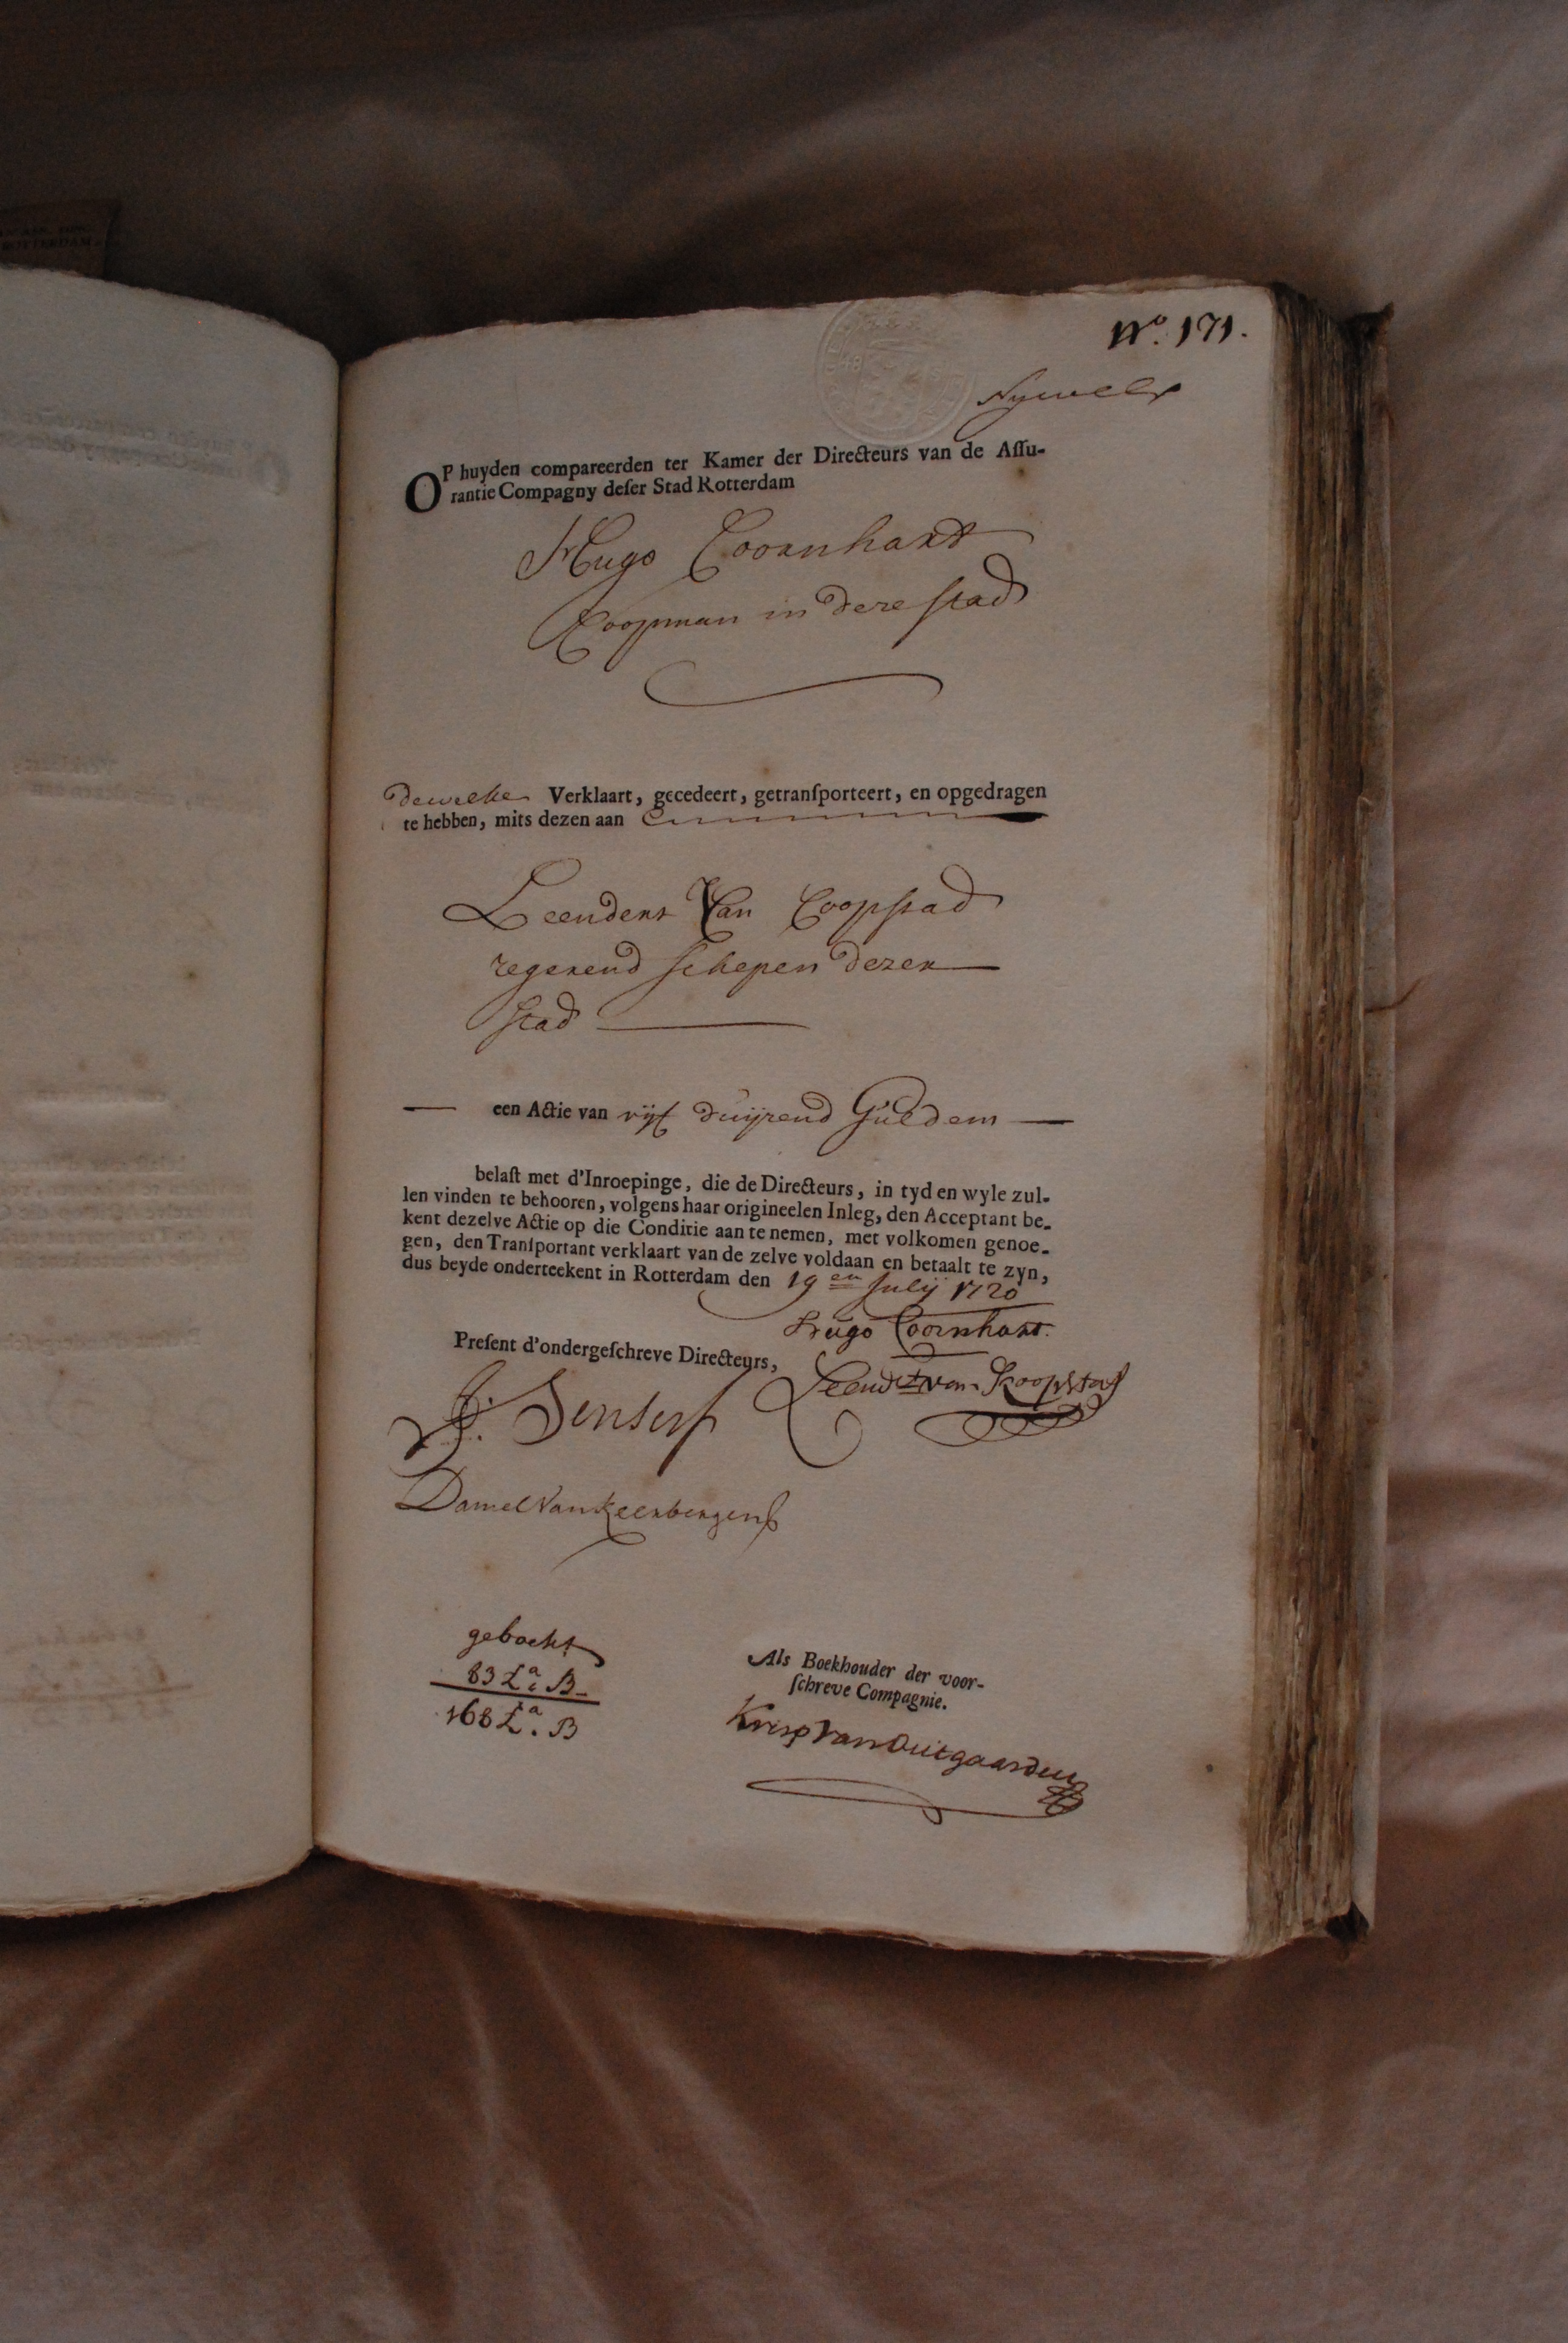 No. 171.
OP huyden compareerden ter Kamer der Directeurs van de Assu-
rantie Compagny deser Stad Rotterdam
Hugo Coornhart
Coopman in deze stad
dewelke Verklaart, gecedeert, getransporteert, en opgedragen
te hebben, mits dezen aan
Leendert Van Coopstad
regerend schepen dezer
stad
een Actie van vijf duijzend Gulden
belast met d'Inroepinge, die de Directeurs, in tyd en wyle zul-
len vinden te behooren, volgens haar origineelen Inleg, den Acceptant be-
kent dezelve Actie op die Conditie aan te nemen, met volkomen genoe-
gen, den Transportant verklaart van de zelve voldaan en betaalt te zyn,
dus beyde onderteekent in Rotterdam den 19en Julij 1720
Hugo Coornhart.
Present d'ondergeschreve Directeurs,
Leendt van Koopstad
J. Senserf
Daniel Van Keerbergen
gebockt
83 La. B
168 La. B
Als Boekhouder der voor-
schreve Compagnie.
Krisp Van Outgaarden
ROTTERDAM